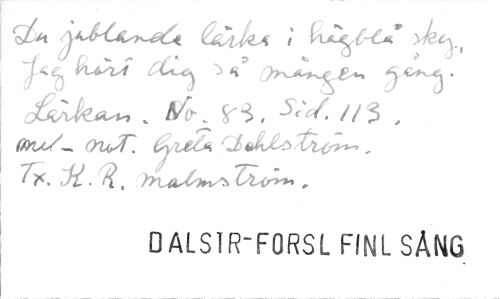 Du jublande lärka i högblå sky,
Jag hört dig så mången gång.
Lärkan. No. 83. Sid. 113.
mel- not. Greta Dahlström.
Tx. K. R. Malmström.
DALSTR-FORSL FINL SÅNG